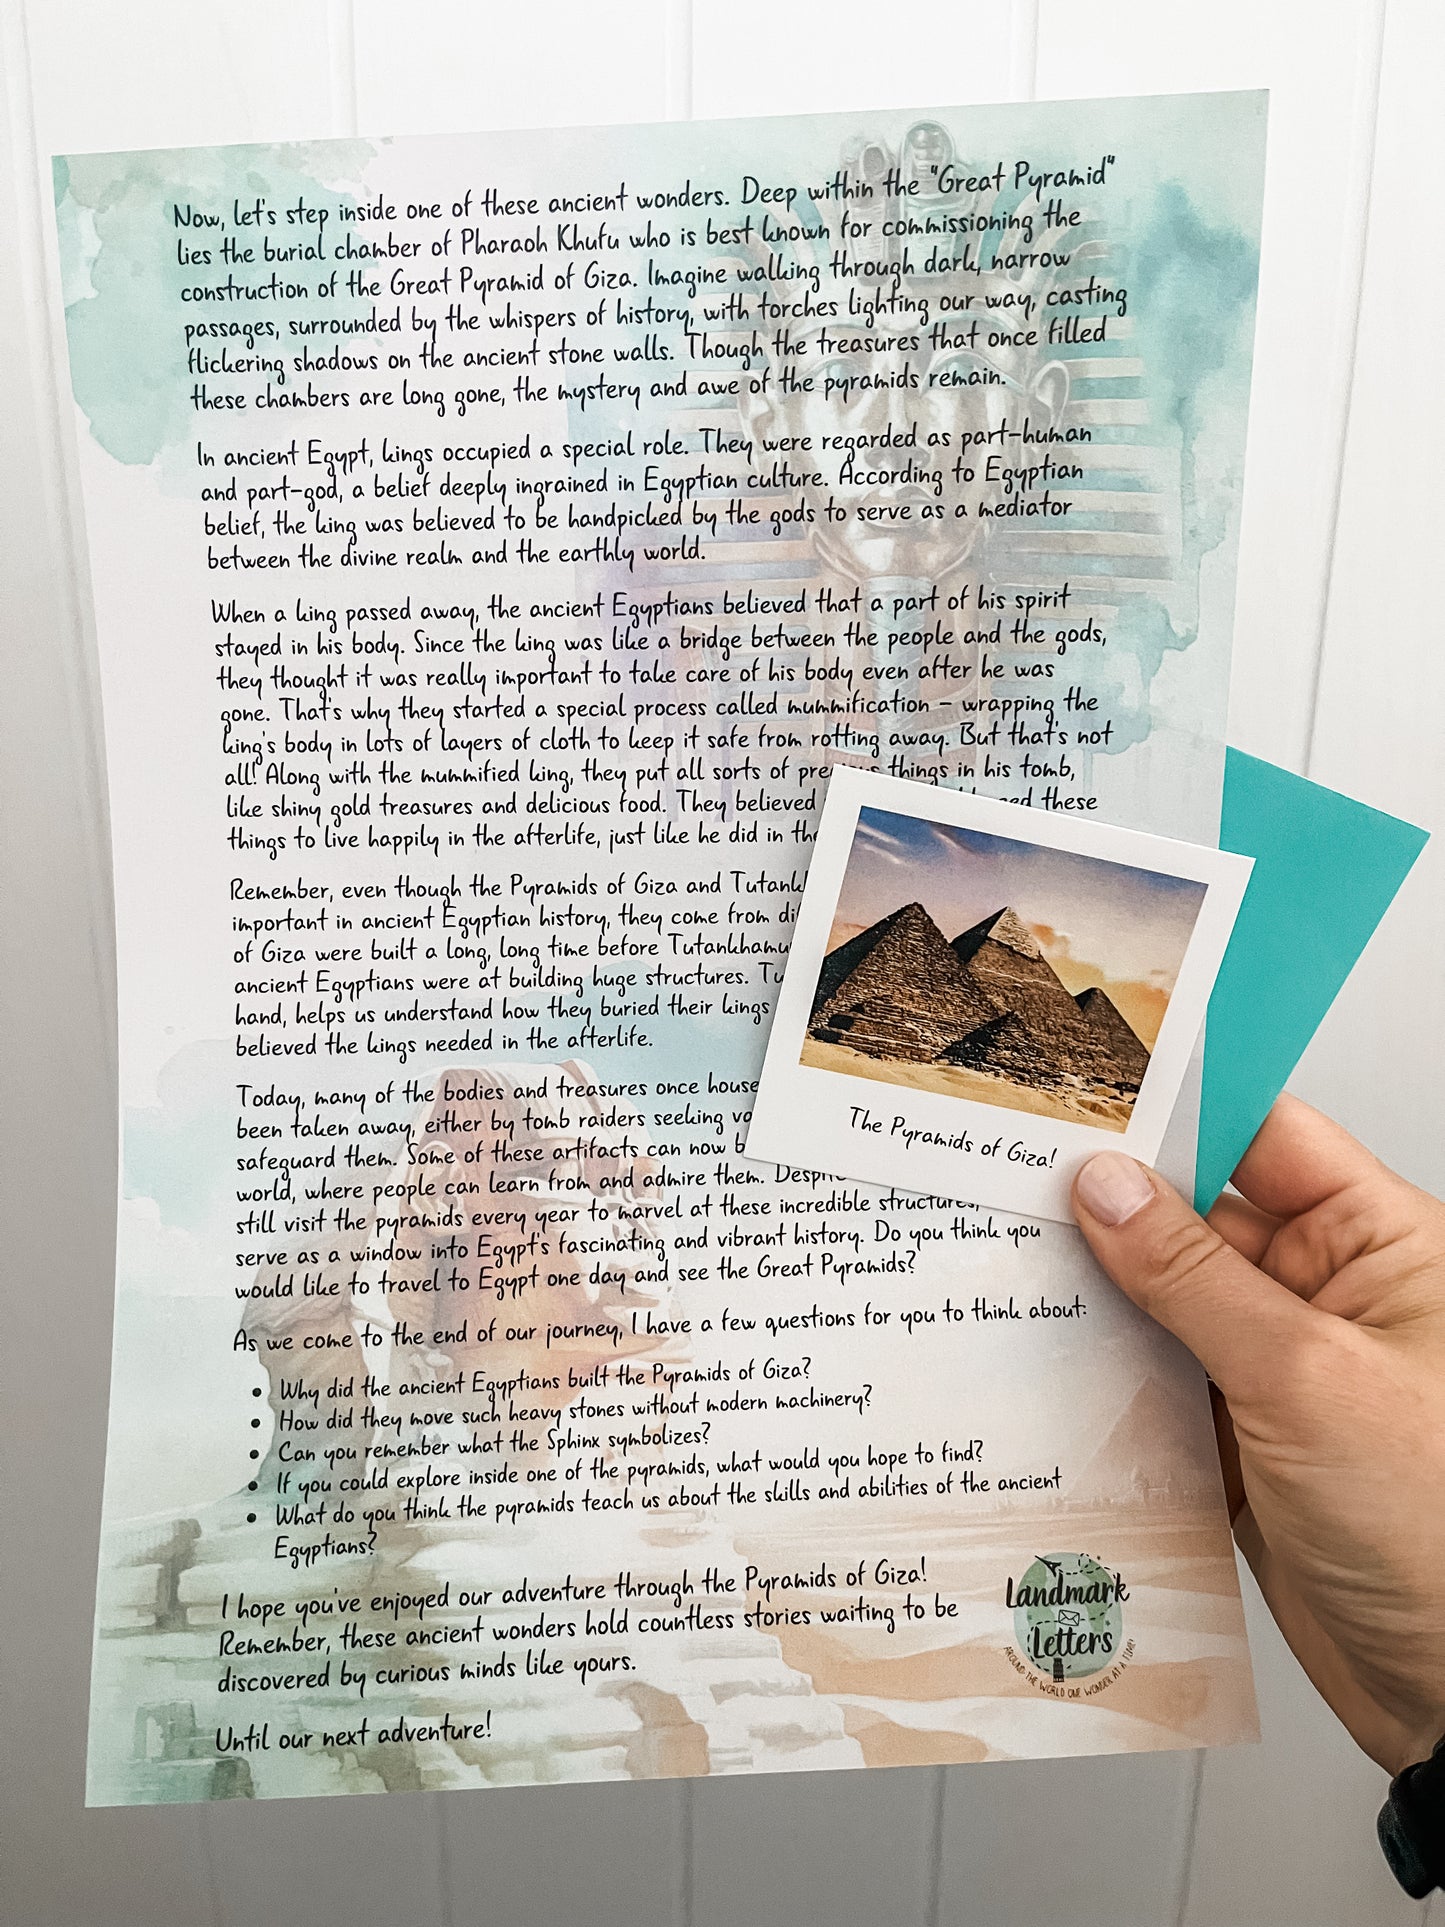 Now, let's step inside one of these ancient wonders. Deep within the "Great Pyramid"
lies the burial chamber of Pharaoh Khufu who is best known for commissioning the
construction of the Great Pyramid of Giza. Imagine walking through dark, narrow
passages, surrounded by the whispers of history, with torches lighting our way, casting
flickering shadows on the ancient stone walls. Though the treasures that once filled
these chambers are long gone, the mystery and awe of the pyramids remain.
In ancient Egypt, kings occupied a special role. They were regarded as part-human
and part-god, a belief deeply ingrained in Egyptian culture. According to Egyptian
belief, the king was believed to be handpicked by the gods to serve as a mediator
between the divine realm and the earthly world.
When a king passed away, the ancient Egyptians believed that a part of his spirit
stayed in his body. Since the king was like a bridge between the people and the gods,
they thought it was really important to take care of his body even after he was
gone. That's why they started a special process called mummification – wrapping the
king's body in lots of layers of cloth to keep it safe from rotting away. But that's not
all! Along with the mummified king, they put all sorts of things in his tomb,
like shiny gold treasures and delicious food. They believed these
things to live happily in the afterlife, just like he did in
Remember, even though the Pyramids of Giza and
important in ancient Egyptian history, they come from
of Giza were built a long, long time before
ancient Egyptians were at building huge structures.
hand, helps us understand how they buried their kings
believed the kings needed in the afterlife.
Today, many of the bodies and treasures once
been taken away, either by tomb raiders seeking
safeguard them. Some of these artifacts can now
world, where people can learn from and admire them.
still visit the pyramids every year to marvel at these incredible
serve as a window into Egypt's fascinating and vibrant history. Do you think you
would like to travel to Egypt one day and see the Great Pyramids?
As we come to the end of our journey, I have a few questions for you to think about:
• Why did the ancient Egyptians built the Pyramids of Giza?
• How did they move such heavy stones without modern machinery?
• Can you remember what the Sphinx symbolizes?
• If you could explore inside one of the pyramids, what would you hope to find?
• What do you think the pyramids teach us about the skills and abilities of the ancient
Egyptians?
I hope you've enjoyed our adventure through the Pyramids of Giza!
Remember, these ancient wonders hold countless stories waiting to be
discovered by curious minds like yours.
Until our next adventure!
The Pyramids of Giza!
Landmark
Letters
AROUND THE WORLD ONE WONDER AT A TIME!